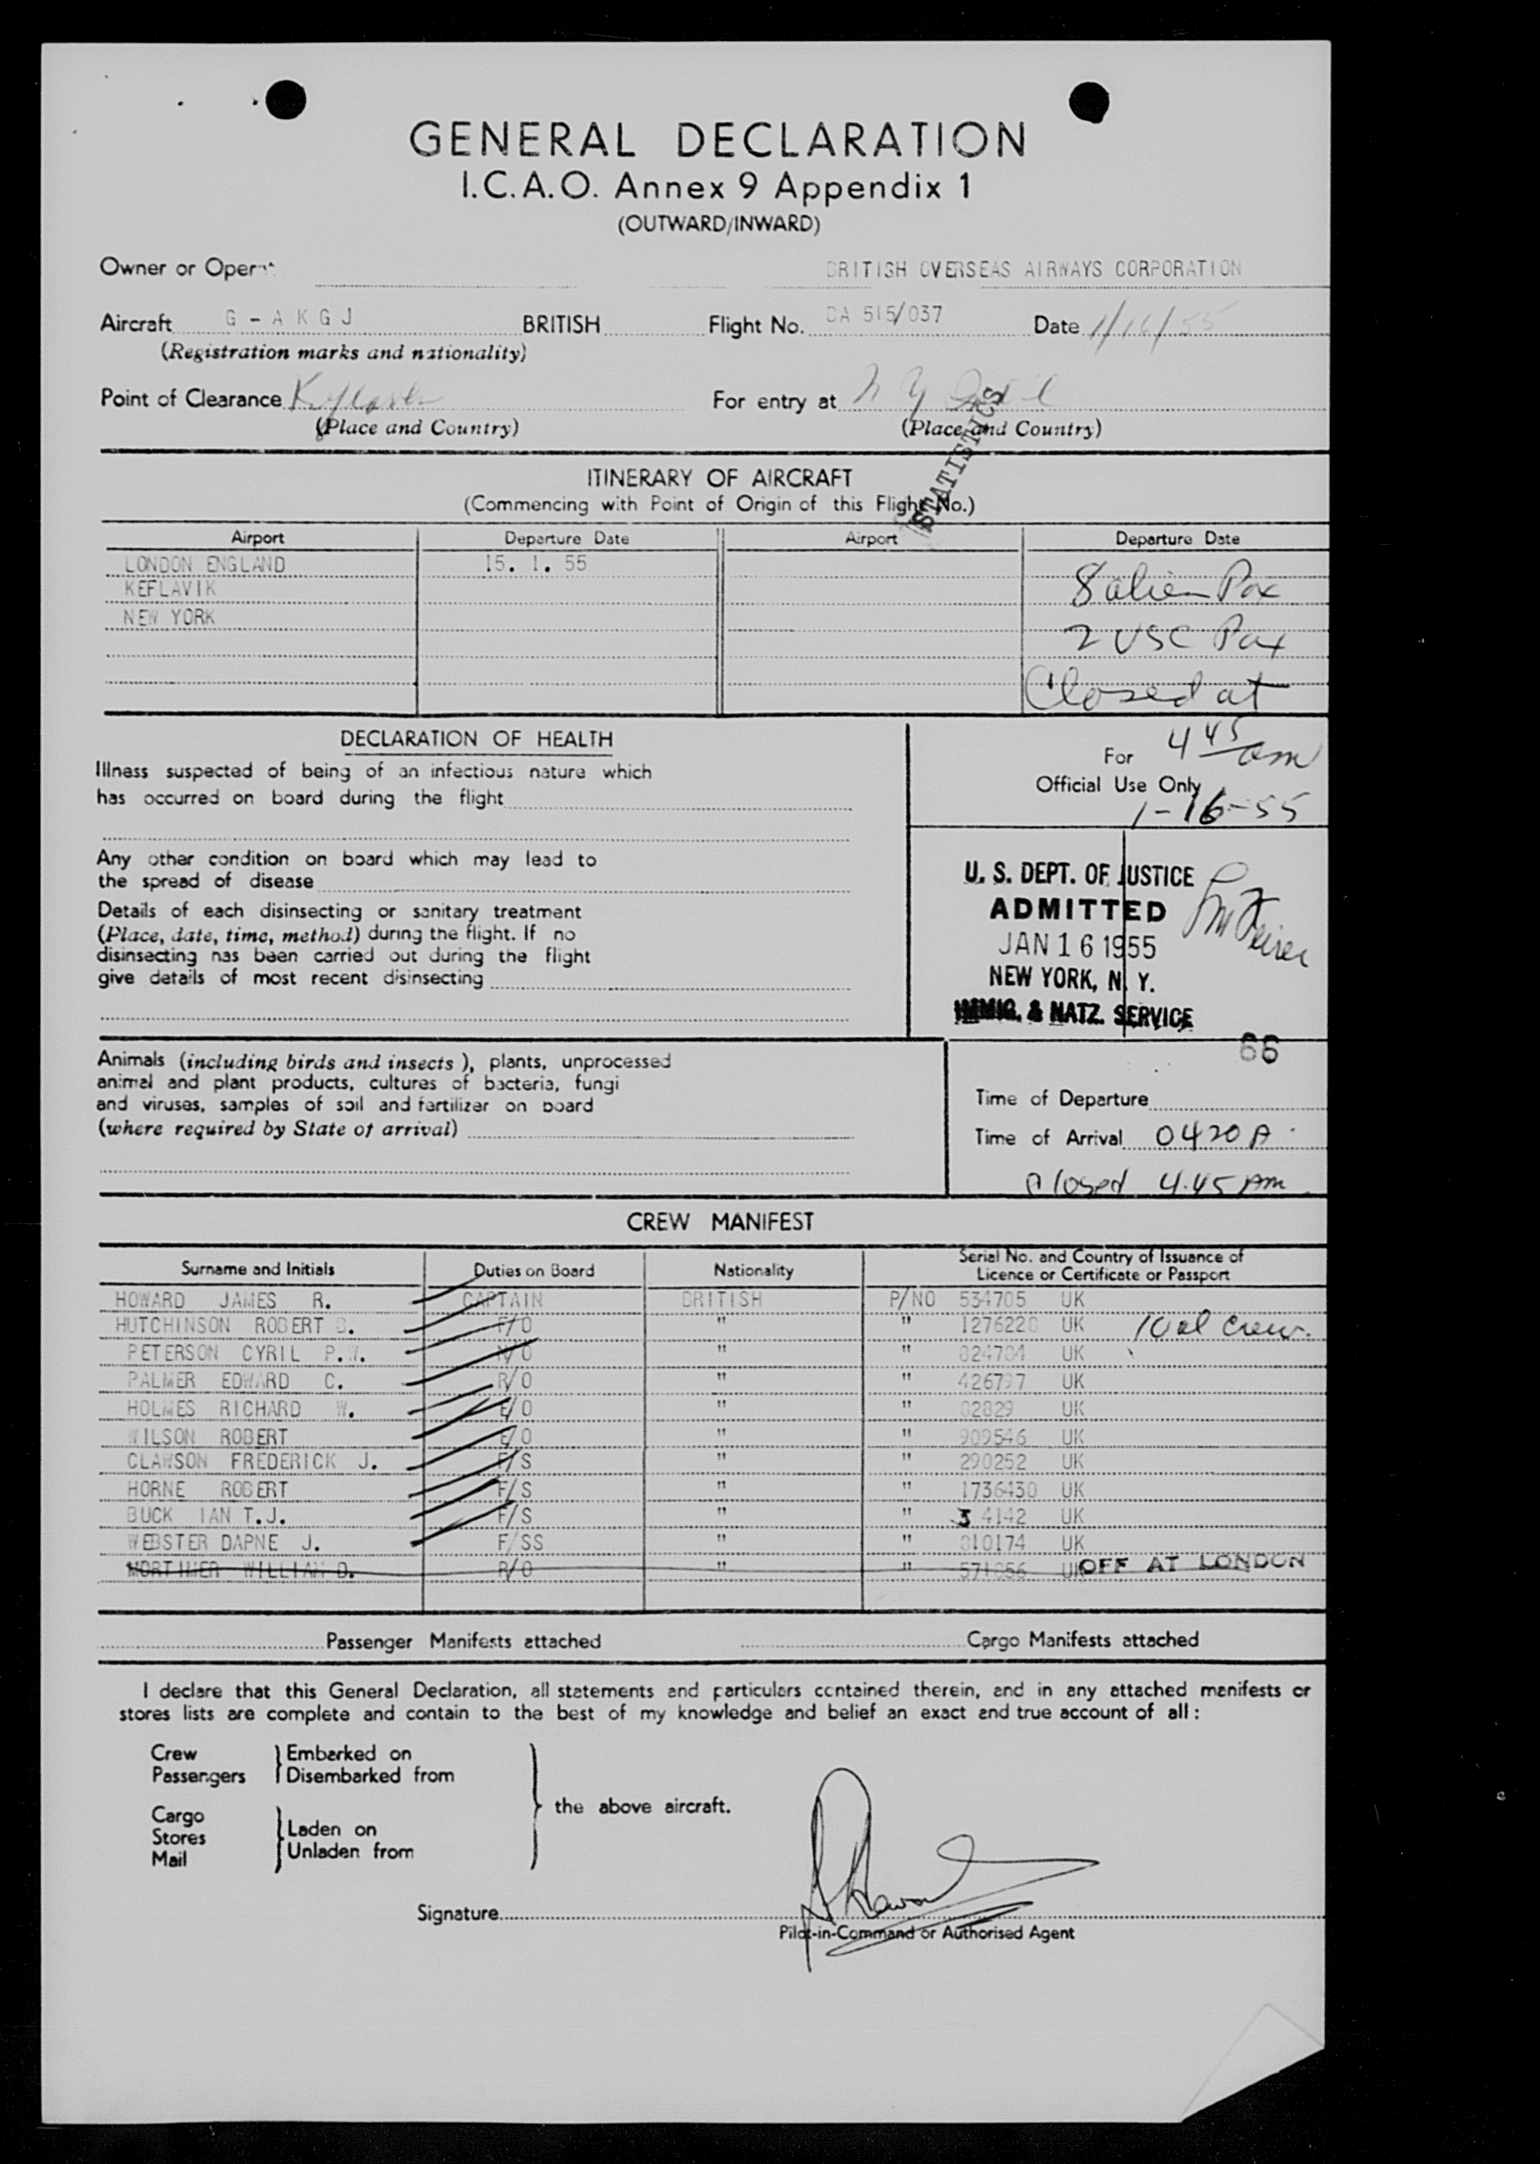 GENERAL DECLARATION
I.C.A.O. Annex 9 Appendix 1
(OUTWARD/INWARD)
Owner or Oper BRITISH OVERSEAS AIRWAYS CORPORATION
Aircraft G - A K G J BRITISH Flight No. BA 515/037 Date 1/16/55
(Registration marks and nationality)
Point of Clearance Keflavik For entry at N Y
(Place and Country) (Place and Country)
STATISTICS
ITINERARY OF AIRCRAFT
(Commencing with Point of Origin of this Flight No.)
Airport Departure Date Airport Departure Date
LONDON ENGLAND 15. 1. 55
KEFLAVIK 8 alien Pax
NEW YORK
2 USC Pax
Closed at
DECLARATION OF HEALTH
For 4 45 am
Official Use Only
1-16-55
Illness suspected of being of an infectious nature which
has occurred on board during the flight
Any other condition on board which may lead to
the spread of disease
Details of each disinsecting or sanitary treatment
(Place, date, time, method) during the flight. If no
disinsecting has been carried out during the flight
give details of most recent disinsecting
U. S. DEPT. OF JUSTICE
ADMITTED
JAN 16 1955
NEW YORK, N. Y.
IMMIG. & NATZ. SERVICE
66
Animals (including birds and insects), plants, unprocessed
animal and plant products, cultures of bacteria, fungi
and viruses, samples of soil and fertilizer on board
(where required by State of arrival)
Time of Departure
Time of Arrival 0420 A
Closed 4.45 AM
CREW MANIFEST
Surname and Initials Duties on Board Nationality Serial No. and Country of Issuance of
Licence or Certificate or Passport
HOWARD JAMES R. CAPTAIN BRITISH P/NO 534705 UK
HUTCHINSON ROBERT F/O " " 127622 UK 10 al crew.
PETERSON CYRIL P.W. N/O " " 024704 UK
PALMER EDWARD C. R/O " " 426797 UK
HOLMES RICHARD W. E/O " " 02829 UK
WILSON ROBERT E/O " " 909546 UK
CLAWSON FREDERICK J. F/S " " 290252 UK
HORNE ROBERT F/S " " 1736430 UK
BUCK IAN T.J. F/S " " 34142 UK
WEBSTER DAPNE J. F/SS " " 310174 UK
MORTIMER WILLIAM D. R/O " " 571056 UK OFF AT LONDON
Passenger Manifests attached Cargo Manifests attached
I declare that this General Declaration, all statements and particulars contained therein, and in any attached manifests or
stores lists are complete and contain to the best of my knowledge and belief an exact and true account of all :
Crew Embarked on
Passengers Disembarked from
the above aircraft.
Cargo
Stores Laden on
Mail Unladen from
Signature
Pilot-in-Command or Authorised Agent